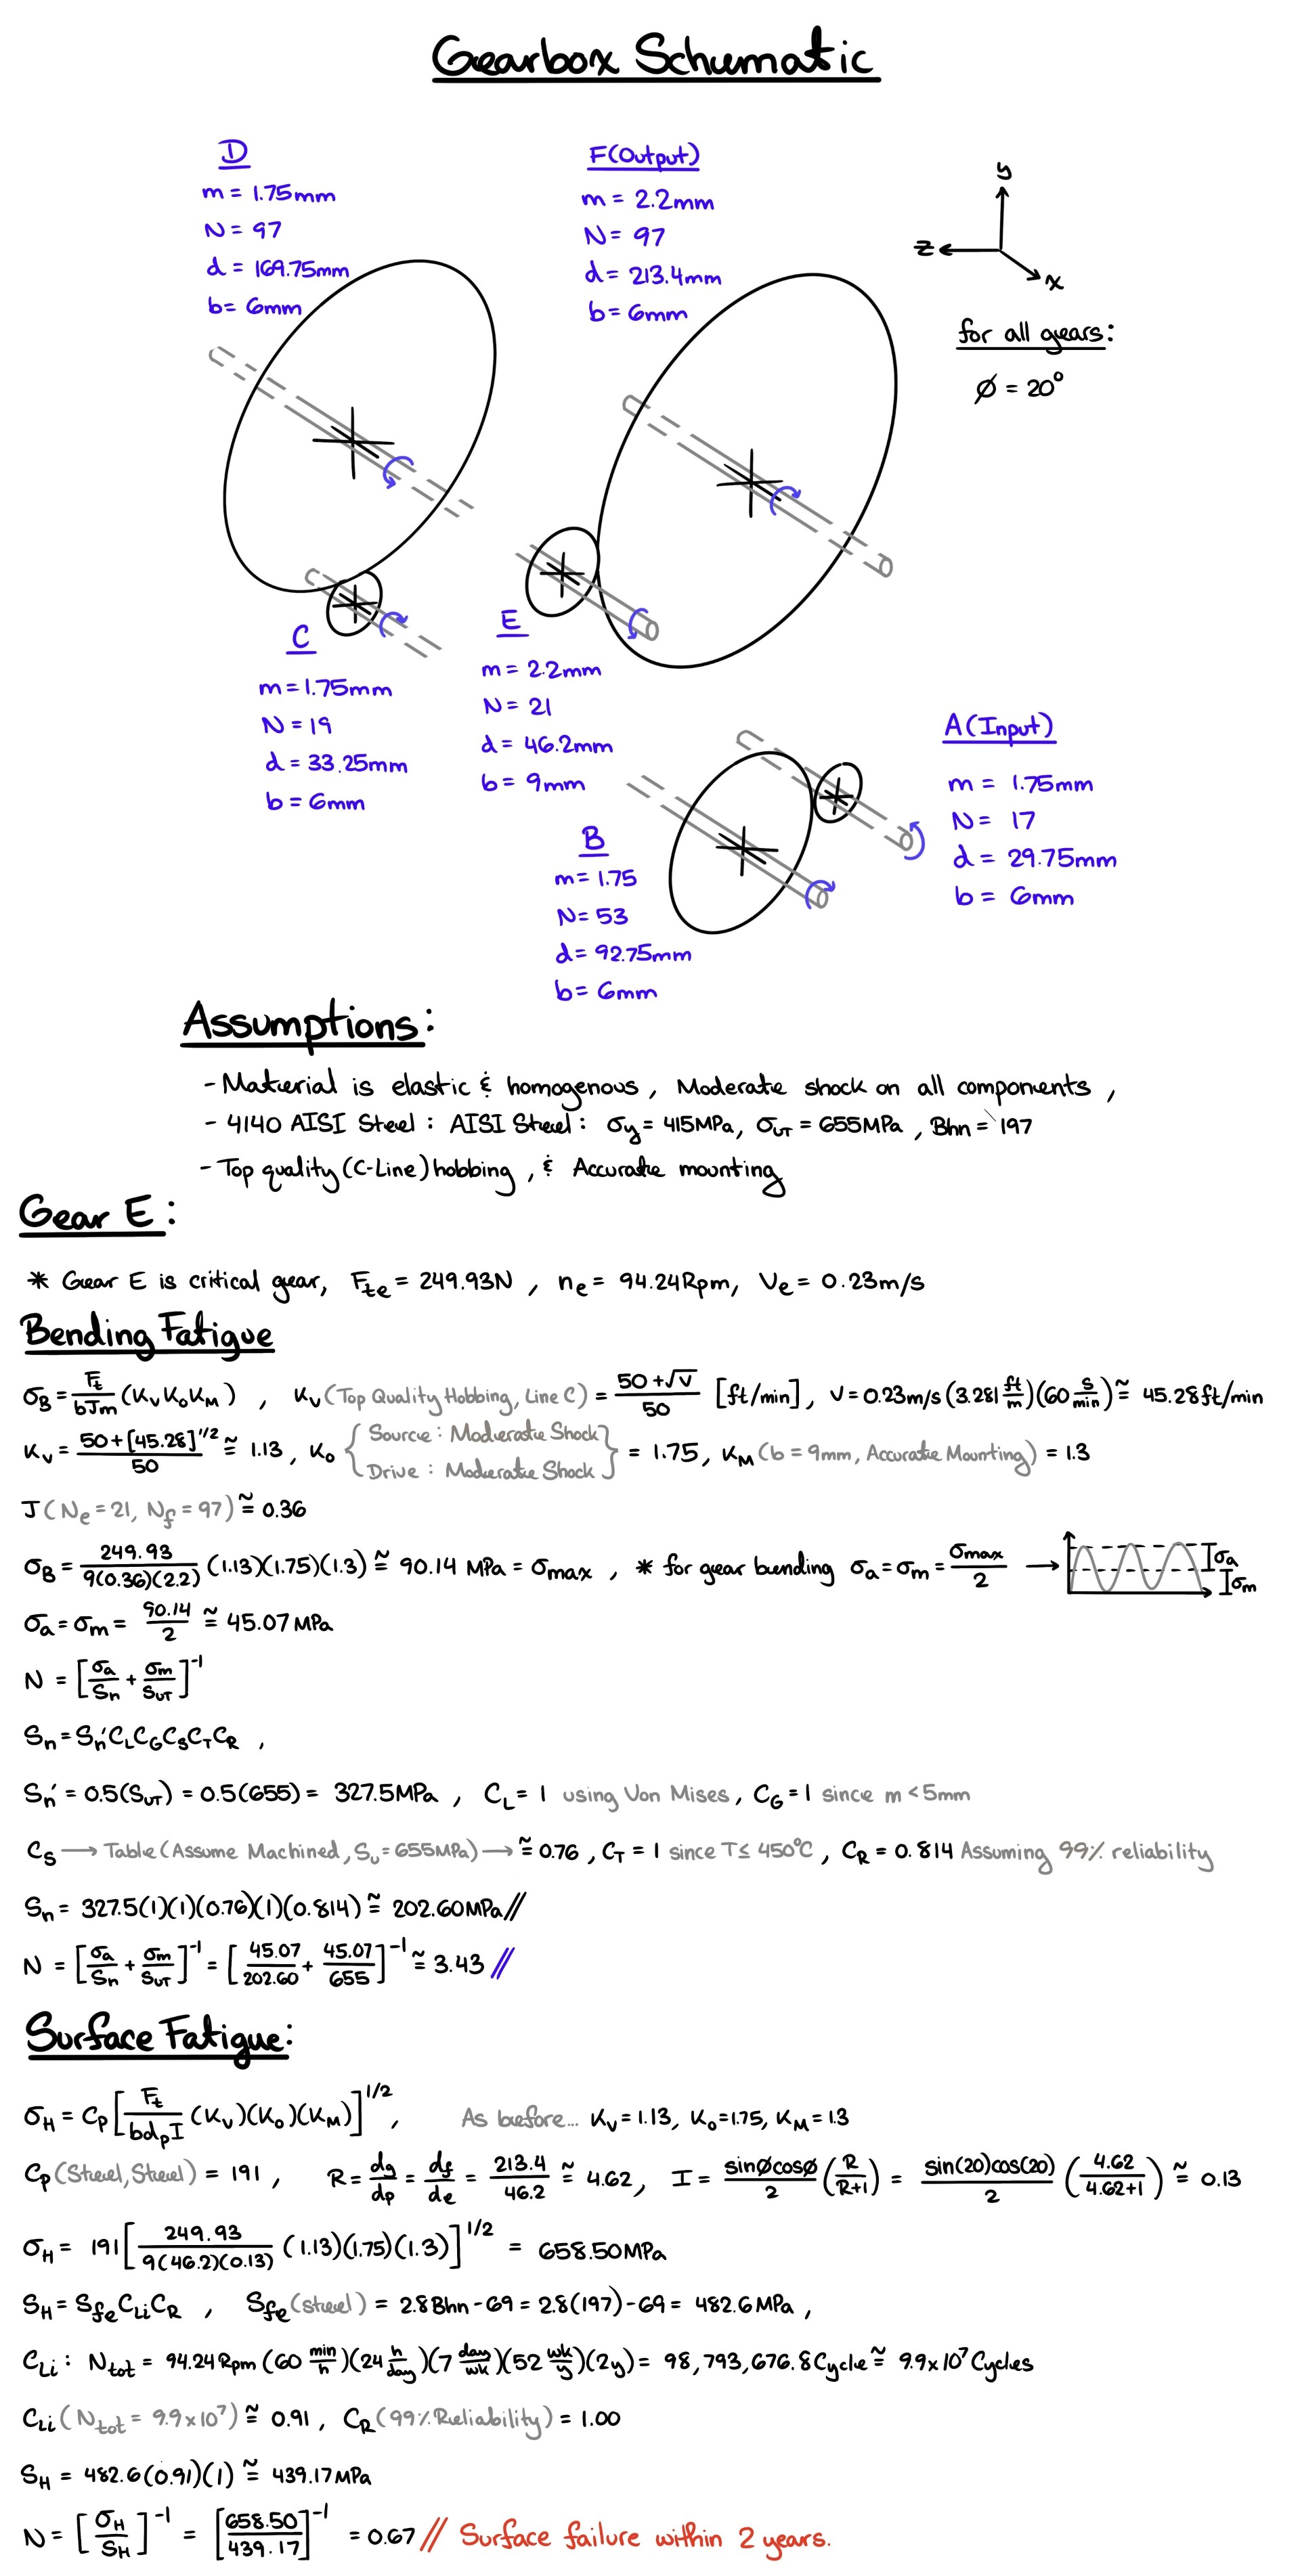 Gearbox Schematic
D
m = 1.75mm
N = 97
d = 169.75mm
b= 6mm
F(Output)
m = 2.2mm
N= 97
d= 213.4mm
b= 6mm
y
z
x
for all gears:
Ø = 20°
C
m=1.75mm
N = 19
d = 33.25mm
b = 6mm
E
m = 2.2mm
N = 21
d = 46.2mm
b = 9mm
A(Input)
m = 1.75mm
N = 17
d = 29.75mm
b = 6mm
B
m= 1.75
N= 53
d= 92.75mm
b= 6mm
Assumptions:
- Material is elastic & homogenous, Moderate shock on all components,
- 4140 AISI Steel: AISI Steel: σy = 415MPa, σUT = 655MPa, Bhn = 197
- Top quality (C-Line) hobbing, & Accurate mounting
Gear E:
* Gear E is critical gear, Fte = 249.93N, ne = 94.24Rpm, Ve = 0.23m/s
Bending Fatigue
σB = Ft/bJm (KvKoKM), Kv (Top Quality Hobbing, Line C) = 50+√V/50 [ft/min], V=0.23m/s(3.281 ft/m)(60 s/min) ≅ 45.28ft/min
Kv = 50+[45.28]^1/2/50 ≅ 1.13, Ko {Source: Moderate Shock Drive: Moderate Shock} = 1.75, KM (b=9mm, Accurate Mounting) = 1.3
J(Ne = 21, Nf = 97) ≅ 0.36
σB = 249.93/9(0.36)(2.2) (1.13)(1.75)(1.3) ≅ 90.14 MPa = σmax, * for gear bending σa = σm = σmax/2 → σa σm
σa = σm = 90.14/2 ≅ 45.07MPa
N = [σa/Sn + σm/SUT]^-1
Sn = Sn'CLCGCSCTCR,
Sn' = 0.5(SUT) = 0.5(655) = 327.5MPa, CL = 1 using Von Mises, CG = 1 since m<5mm
CS → Table (Assume Machined, Su = 655MPa) → ≅ 0.76, CT = 1 since T≤ 450°C, CR = 0.814 Assuming 99% reliability
Sn = 327.5(1)(1)(0.76)(1)(0.814) ≅ 202.60MPa//
N = [σa/Sn + σm/SUT]^-1 = [45.07/202.60 + 45.07/655]^-1 ≅ 3.43 //
Surface Fatigue:
σH = Cp[Ft/bdpI (Kv)(Ko)(KM)]^1/2, As before... Kv = 1.13, Ko=1.75, KM = 1.3
Cp (Steel, Steel) = 191, R= dg/dp = df/de = 213.4/46.2 ≅ 4.62, I = sinØcosØ/2 (R/R+1) = sin(20)cos(20)/2 (4.62/4.62+1) ≅ 0.13
σH = 191[249.93/9(46.2)(0.13) (1.13)(1.75)(1.3)]^1/2 = 658.50MPa
SH = SfeCLiCR, Sfe (steel) = 2.8Bhn - 69 = 2.8(197) - 69 = 482.6MPa,
CLi: Ntot = 94.24Rpm (60 min/h)(24 h/day)(7 day/wk)(52 wk/y)(2y) = 98,793,676.8Cycle ≅ 9.9x10^7 Cycles
CLi (Ntot = 9.9x10^7) ≅ 0.91, CR (99% Reliability) = 1.00
SH = 482.6(0.91)(1) ≅ 439.17MPa
N = [σH/SH]^-1 = [658.50/439.17]^-1 = 0.67// Surface failure within 2 years.